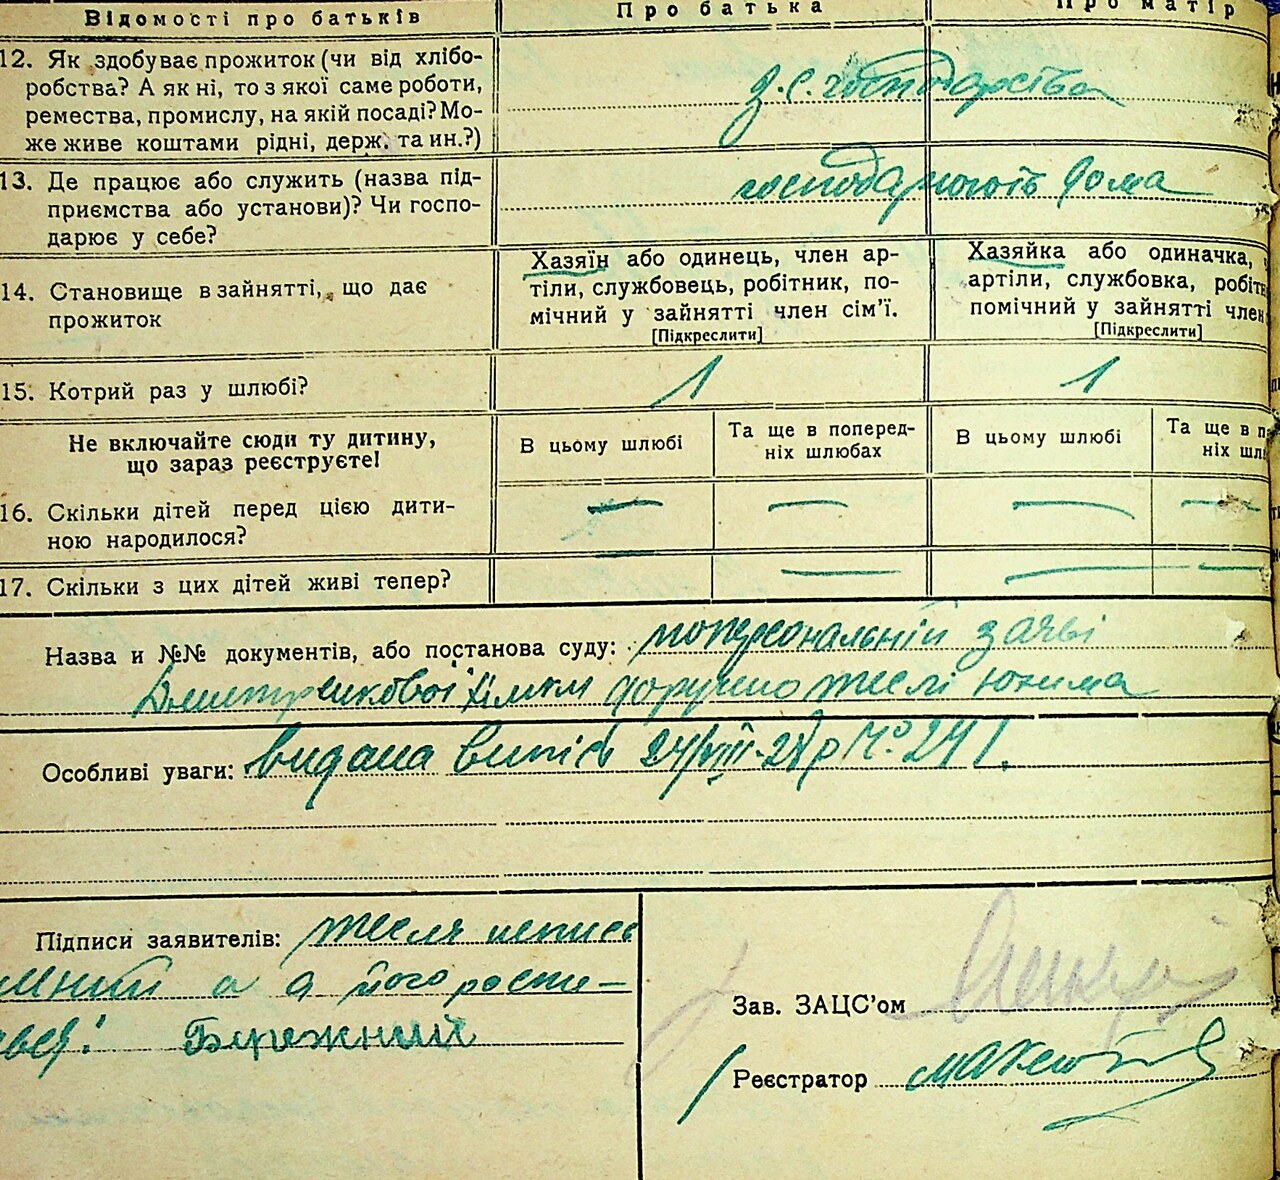 Відомості про батьків
Про батька
Про матір
12. Як здобуває прожиток (чи від хлібо-
робства? А як ні, то з якої саме роботи,
ремества, промислу, на якій посаді? Мо-
же живе коштами рідні, держ. та ин.?)
з с. господарства
13. Де працює або служить (назва під-
приємства або установи)? Чи госпо-
дарює у себе?
господарюють дома
14. Становище в зайнятті, що дає
прожиток
Хазяїн або одинець, член ар-
тіли, службовець, робітник, по-
мічний у зайнятті член сім'ї.
[Підкреслити]
Хазяйка або одиначка,
артіли, службовка, робітн
помічний у зайнятті член
[Підкреслити]
15. Котрий раз у шлюбі?
1
1
Не включайте сюди ту дитину,
що зараз реєструєте!
В цьому шлюбі
Та ще в поперед-
ніх шлюбах
В цьому шлюбі
Та ще в п
ніх шл
16. Скільки дітей перед цією дити-
ною народилося?
— — — —
17. Скільки з цих дітей живі тепер?
— — — —
Назва и №№ документів, або постанова суду: по персональній заяві
доручено теслі Юхима
Особливі уваги: видана випісь 24/VIII-28р № 241.
Підписи заявителів: тесля неписьс
мний а за його рости-
Бережний
Зав. ЗАЦС'ом
Реєстратор